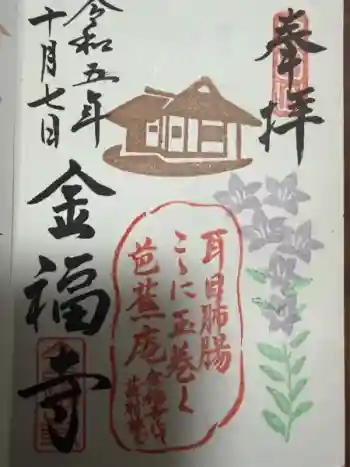 奉拝
耳目肺腸
こゝに玉巻く
芭蕉庵
令和五年
十月七日
金福寺